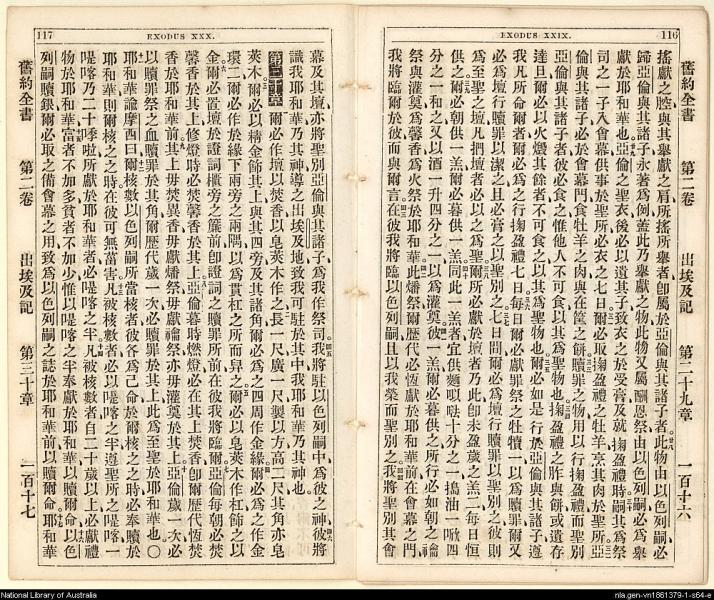 EXODUS XXIX.
116
舊約全書 第二卷 出埃及記 第二十九章 一百十六
搖獻之腔與其舉獻之肩所搖所舉者卽屬於亞倫與其諸子者此物由以色列嗣必
歸亞倫與其諸子永著為例蓋此乃舉獻之物此物又屬酬恩祭由以色列嗣必為舉
獻於耶和華也亞倫之聖衣後必以遺其子致衣之於受膏及就掬盈禮時嗣其為祭
司之一子入會幕供事於聖所必衣之七日爾必取掬盈禮之牡羊烹其肉於聖所亞
倫與其諸子必於會幕門食牡羊之肉與在筐之餅贖罪之物用以行掬盈禮而聖別
亞倫與其諸子者彼必食之惟他人不可食以其為聖物也掬盈禮之胙與餅或遺存
達旦爾必以火燬其餘者不可食之以其為聖物也爾必如是行於亞倫與其諸子遵
我凡所命爾者爾必為之行掬盈禮七日每日爾必獻罪祭之牡犢一以為贖罪爾又
必為壇行贖罪以潔之且必膏之以聖別之七日間爾必為壇行贖罪以聖別之彼則
為至聖之壇凡捫壇者必以之為聖爾所必獻於壇者乃此卽未盈歲之羔二每日恒
供之爾必朝供一羔爾必暮供一羔同此一羔者宜供麵十分之一搗油一四
分之一和之又以酒一升四分之一以為灌奠彼一羔爾必暮供之所行必如朝之
祭與灌奠為馨香為火祭於耶和華此燔祭爾歷代必恒獻於耶和華前在會幕之門
我將臨爾於彼而與爾言在彼我將臨以色列嗣且以我榮而聖別之我將聖別其會
117
EXODUS XXX.
幕及其壇亦將聖別亞倫與其諸子為我作祭司我將駐以色列嗣中為彼之神彼將
識我耶和華乃其神導之出埃及地致我可駐於其中我耶和華乃其神也
第三十章 爾必作壇以焚香以皂莢木作之長一尺廣一尺製以方高二尺其角亦皂
莢木爾必以精金飾其上與其四旁及其諸角爾必為之四周作金緣爾必為之作金
環二爾必作於緣下兩旁之兩隅以為貫杠之所而舁之爾必以皂莢木作杠飾之以
金爾必置壇於證詞櫃旁之簾前卽證詞之贖罪所前在彼我將臨爾亞倫每朝必焚
馨香於其上修燈時必焚馨香於其上亞倫暮時燃燈必在其上焚香卽爾歷代恆焚
香於耶和華前其上毋焚異香毋獻燔祭毋獻祭亦毋灌奠於其上亞倫歲一次必
以贖罪祭之血贖罪於其角爾歷代歲一次必贖罪於其上此為至聖於耶和華也〇
耶和華諭摩西曰爾核數以色列嗣所當核者彼各為己命於爾核之之時必奉贖於
耶和華則爾核之之時在彼可無菑害凡被核數者必以㖷喀之半遵聖所之㖷喀一
㖷喀乃二十季啦所獻於耶和華者必㖷喀之半凡被核數者自二十歲以上必獻禮
物於耶和華富者不加多貧者不加少惟以㖷喀之半奉獻於耶和華以贖爾命以色
列嗣贖銀爾必取之備會幕之用致為以色列嗣之誌於耶和華前以贖爾命耶和華
舊約全書 第二卷 出埃及記 第三十章 一百十七
National Library of Australia
nla.gen-vn1861379-1-s64-e